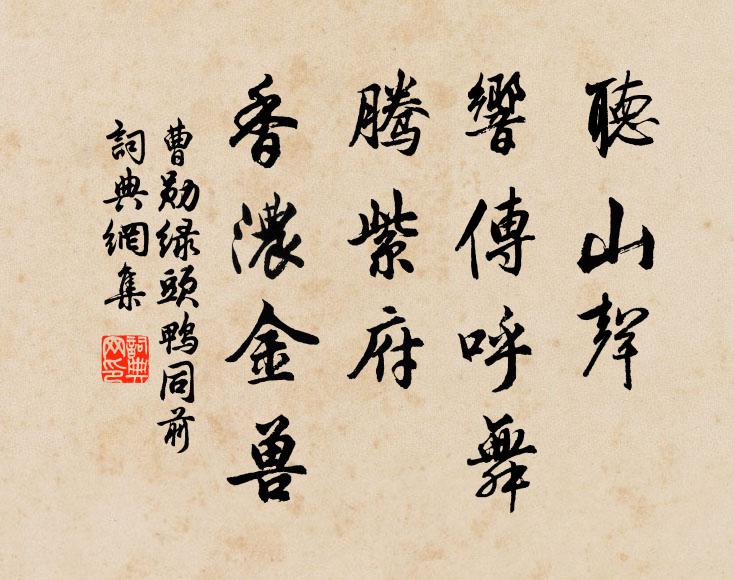 聽山聲
響傳呼舞
騰紫府
香濃金兽
曹勛綠頭鴨同前
詞典網集
詞典網印